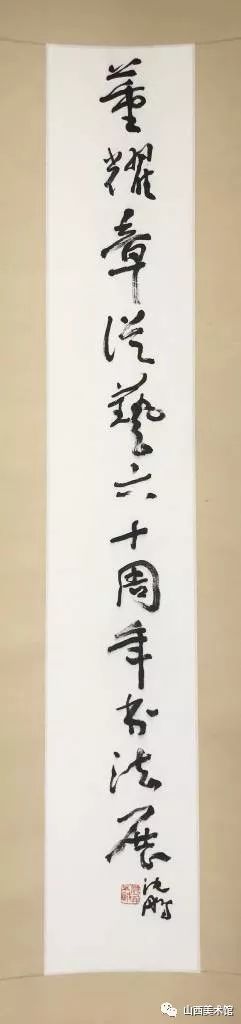 董耀章从藝六十周年书法展
沈鹏
山西美术馆